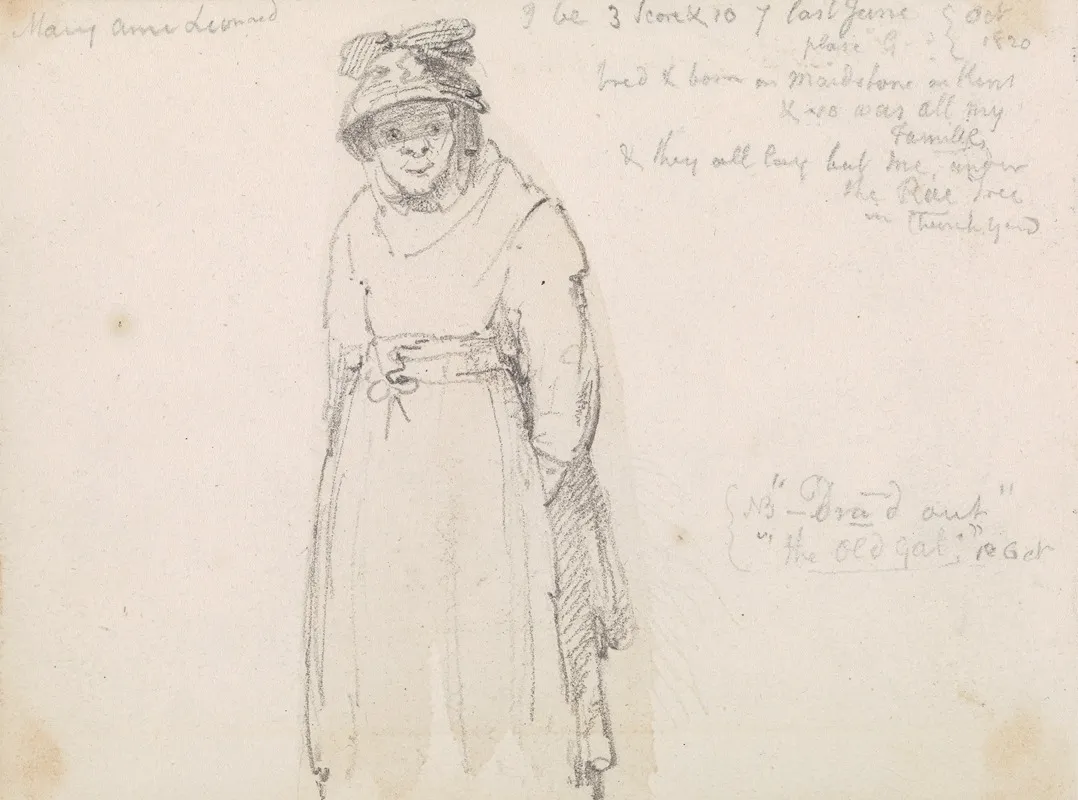 Mary ann Leonard
I be 3 Score & 10 7 last June { Oct
plase G { 1820
bred & born in Maidstone in Kent
& so was all my
Familly,
& they all lay but me, under
the Rue Tree
in Church yard
{ NB "–Dra̅d out"
"the Old Gal," 18 Oct